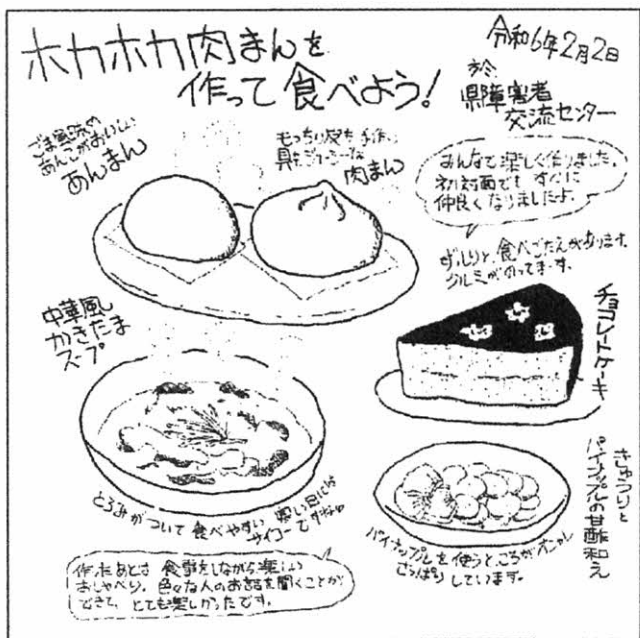 ホカホカ肉まんを
作って食べよう!
令和6年2月2日
於
県障害者
交流センター
ごま風味の
あんこがおいしい
あんまん
もっちり皮も手作り
具もジューシーな
肉まん
みんなで楽しく作りました。
初対面でもすぐに
仲良くなりましたよ。
ずっしりと、食べごたえがあります。
クルミがのってます。
チョコレートケーキ
中華風
かきたま
スープ
とろみがついて食べやすい
寒い日には
サイコーですね
きゅうりと
パイナップルの甘酢和え
パイナップルを使うところがオシャレ
さっぱりしています。
作ったあとは食事をしながら楽しい
おしゃべり。色々な人のお話を聞くことが
できて、とても楽しかったです。